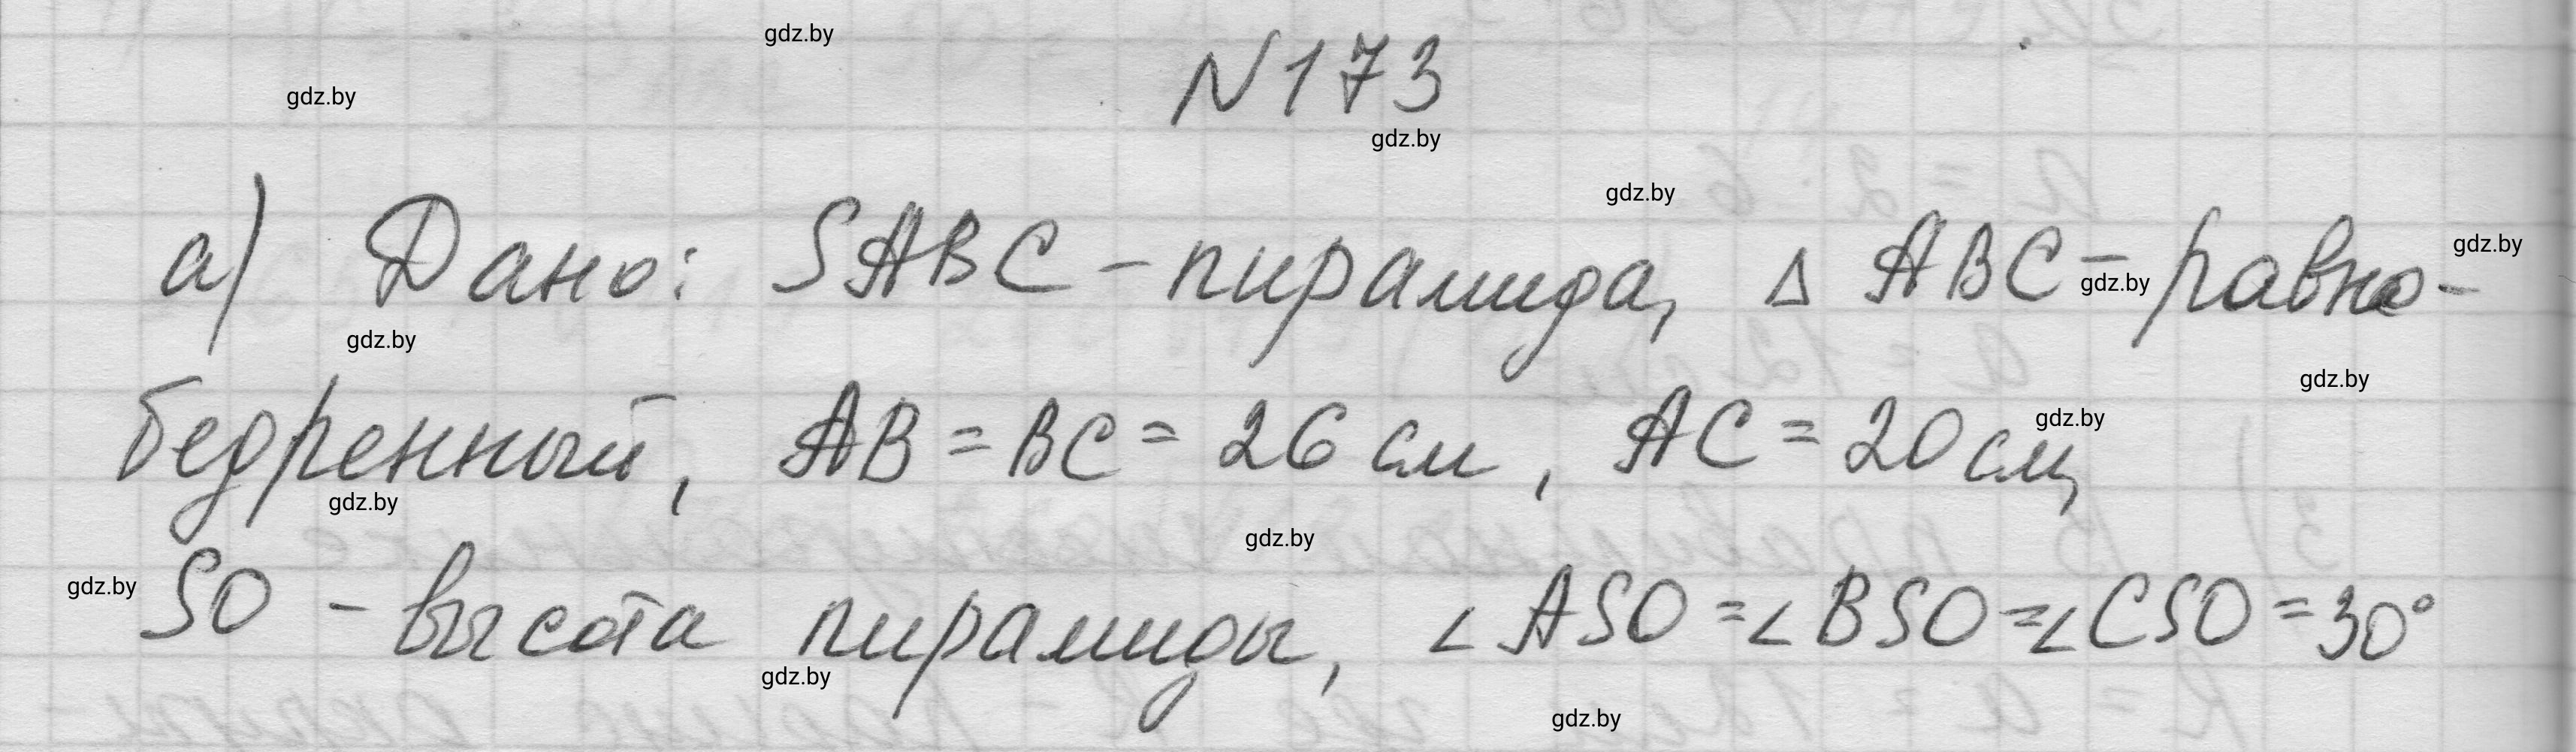 N173
а) Дано: SABC - пирамида, Δ ABC - равно-
бедренный, AB = BC = 26 см, AC = 20 см,
SO - высота пирамиды, ∠ASO = ∠BSO = ∠CSO = 30°
gdz.by
gdz.by
gdz.by
gdz.by
gdz.by
gdz.by
gdz.by
gdz.by
gdz.by
gdz.by
gdz.by
gdz.by
gdz.by
gdz.by